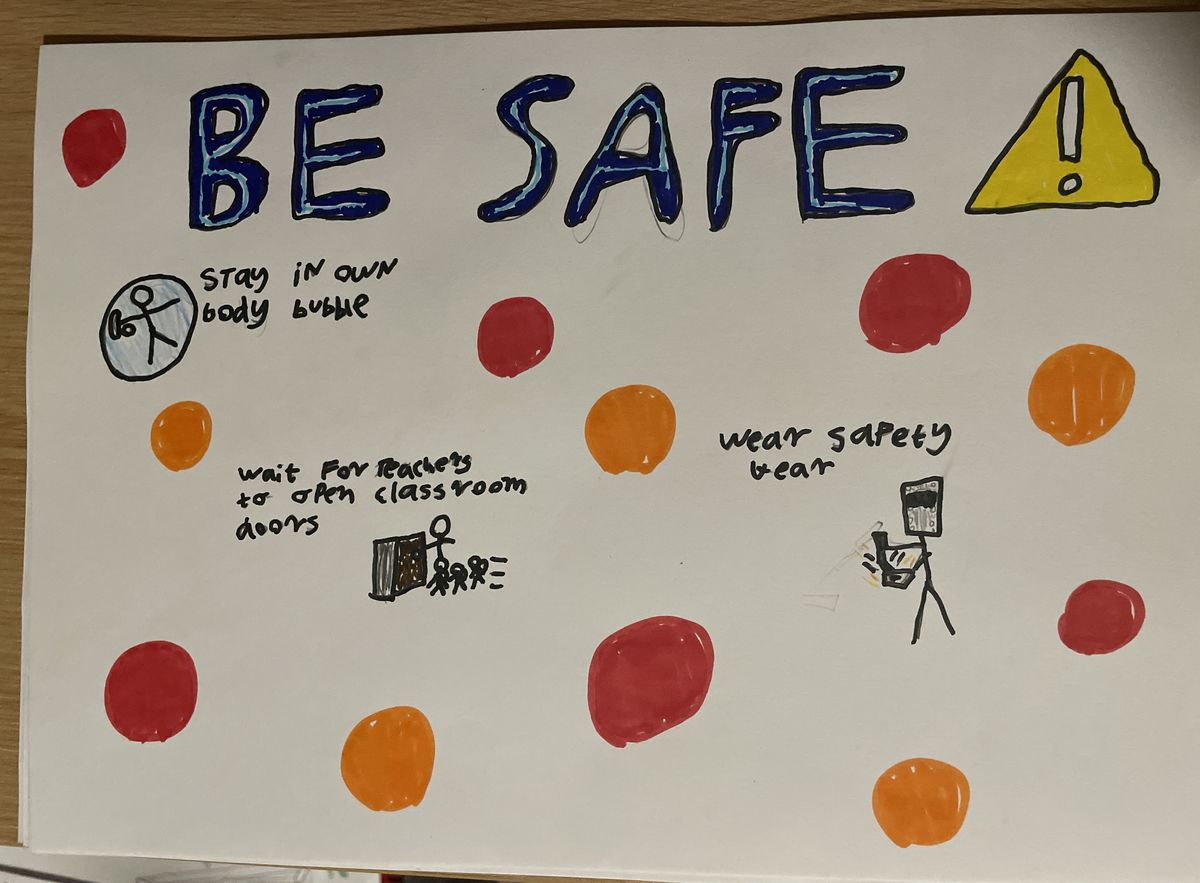 BE SAFE !
Stay in own
body bubble
wait For Teachers
to open classroom
doors
wear safety
gear